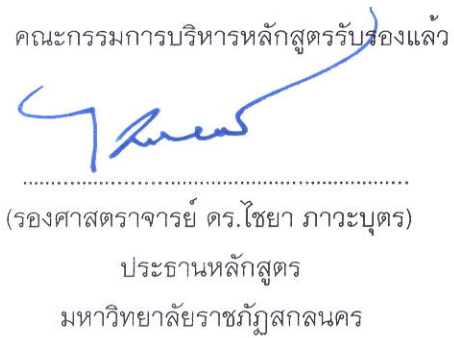 คณะกรรมการบริหารหลักสูตรรับรองแล้ว
(รองศาสตราจารย์ ดร.ไชยา ภาวะบุตร)
ประธานหลักสูตร
มหาวิทยาลัยราชภัฏสกลนคร